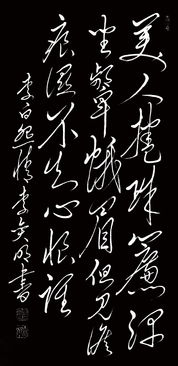 美人捲珠簾深
坐顰蛾眉但見淚
痕濕不知心恨誰
李白怨情 李明書